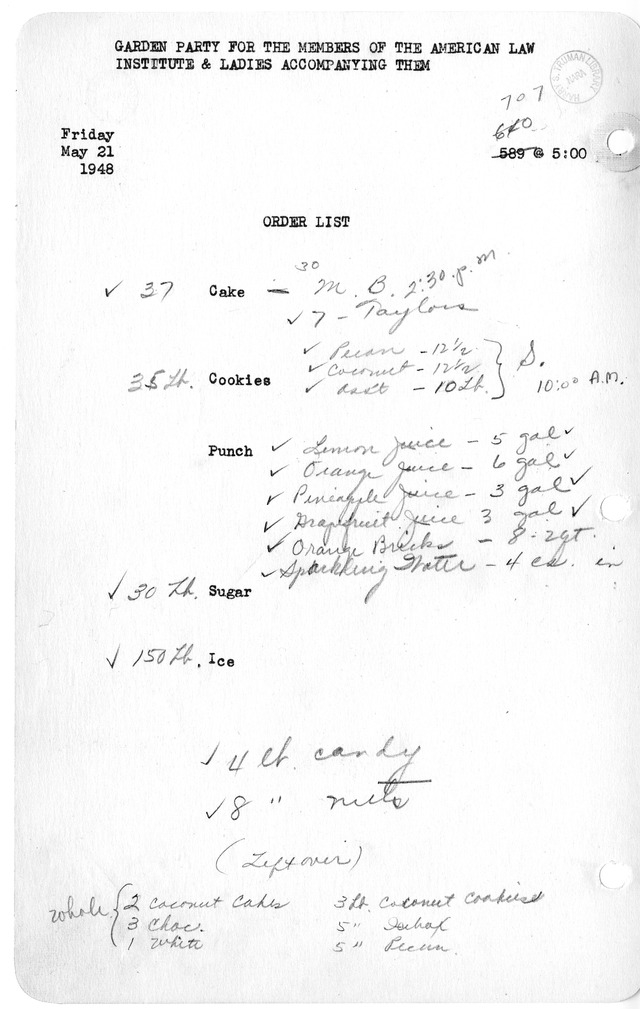 GARDEN PARTY FOR THE MEMBERS OF THE AMERICAN LAW
INSTITUTE & LADIES ACCOMPANYING THEM
HARRY S. TRUMAN LIBRARY
NARA
707
640
Friday
May 21
589 @ 5:00
1948
ORDER LIST
30
✓ 37 Cake - M. B. 2:30 p.m.
✓ 7 - Taylors
✓ Pecan - 12 1/2
✓ Coconut - 12 1/2 } S.
35 Lb. Cookies ✓ Asst - 10 Lb. 10:00 A.M.
Punch ✓ Lemon Juice - 5 gal ✓
✓ Orange Juice - 6 gal ✓
✓ Pineapple Juice - 3 gal ✓
✓ Grapefruit Juice 3 gal ✓
✓ Orange Bricks - 8 - 2 qt.
✓ Sparkling Water - 4 cs. in
✓ 30 Lb. Sugar
✓ 150 Lb. Ice
✓ 4 lb. candy
✓ 8 " nuts
(Leftover)
Whole { 2 Coconut Cakes 3 Lb. Coconut Cookies
3 Choc. 5 "
1 White 5 " Pecan.